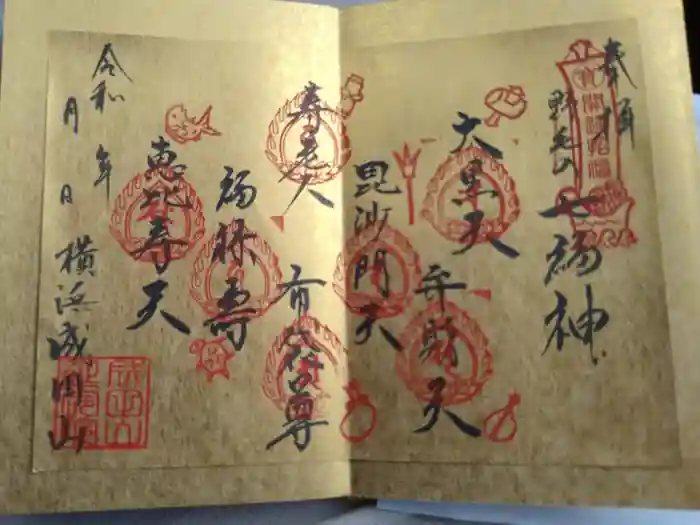 奉拝
野毛山
七福神
大黒天
弁財天
毘沙門天
寿老人
布袋尊
福禄寿
恵比寿天
令和
年
月
日
横浜成田山